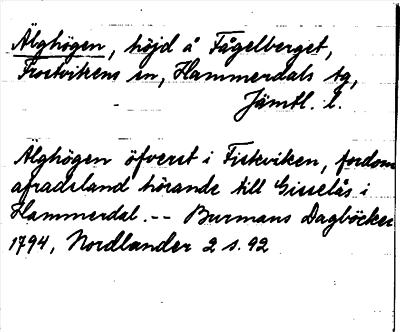 Älghögen, höjd å Fågelberget,
Frostvikens sn, Hammerdals tg,
Jämtl. l.
Älghögen öfverst i Fiskviken, fordom
afradsland hörande till Gisselås i
Hammerdal. -- Burmans Dagböcker
1794, Nordlander 2 s. 92